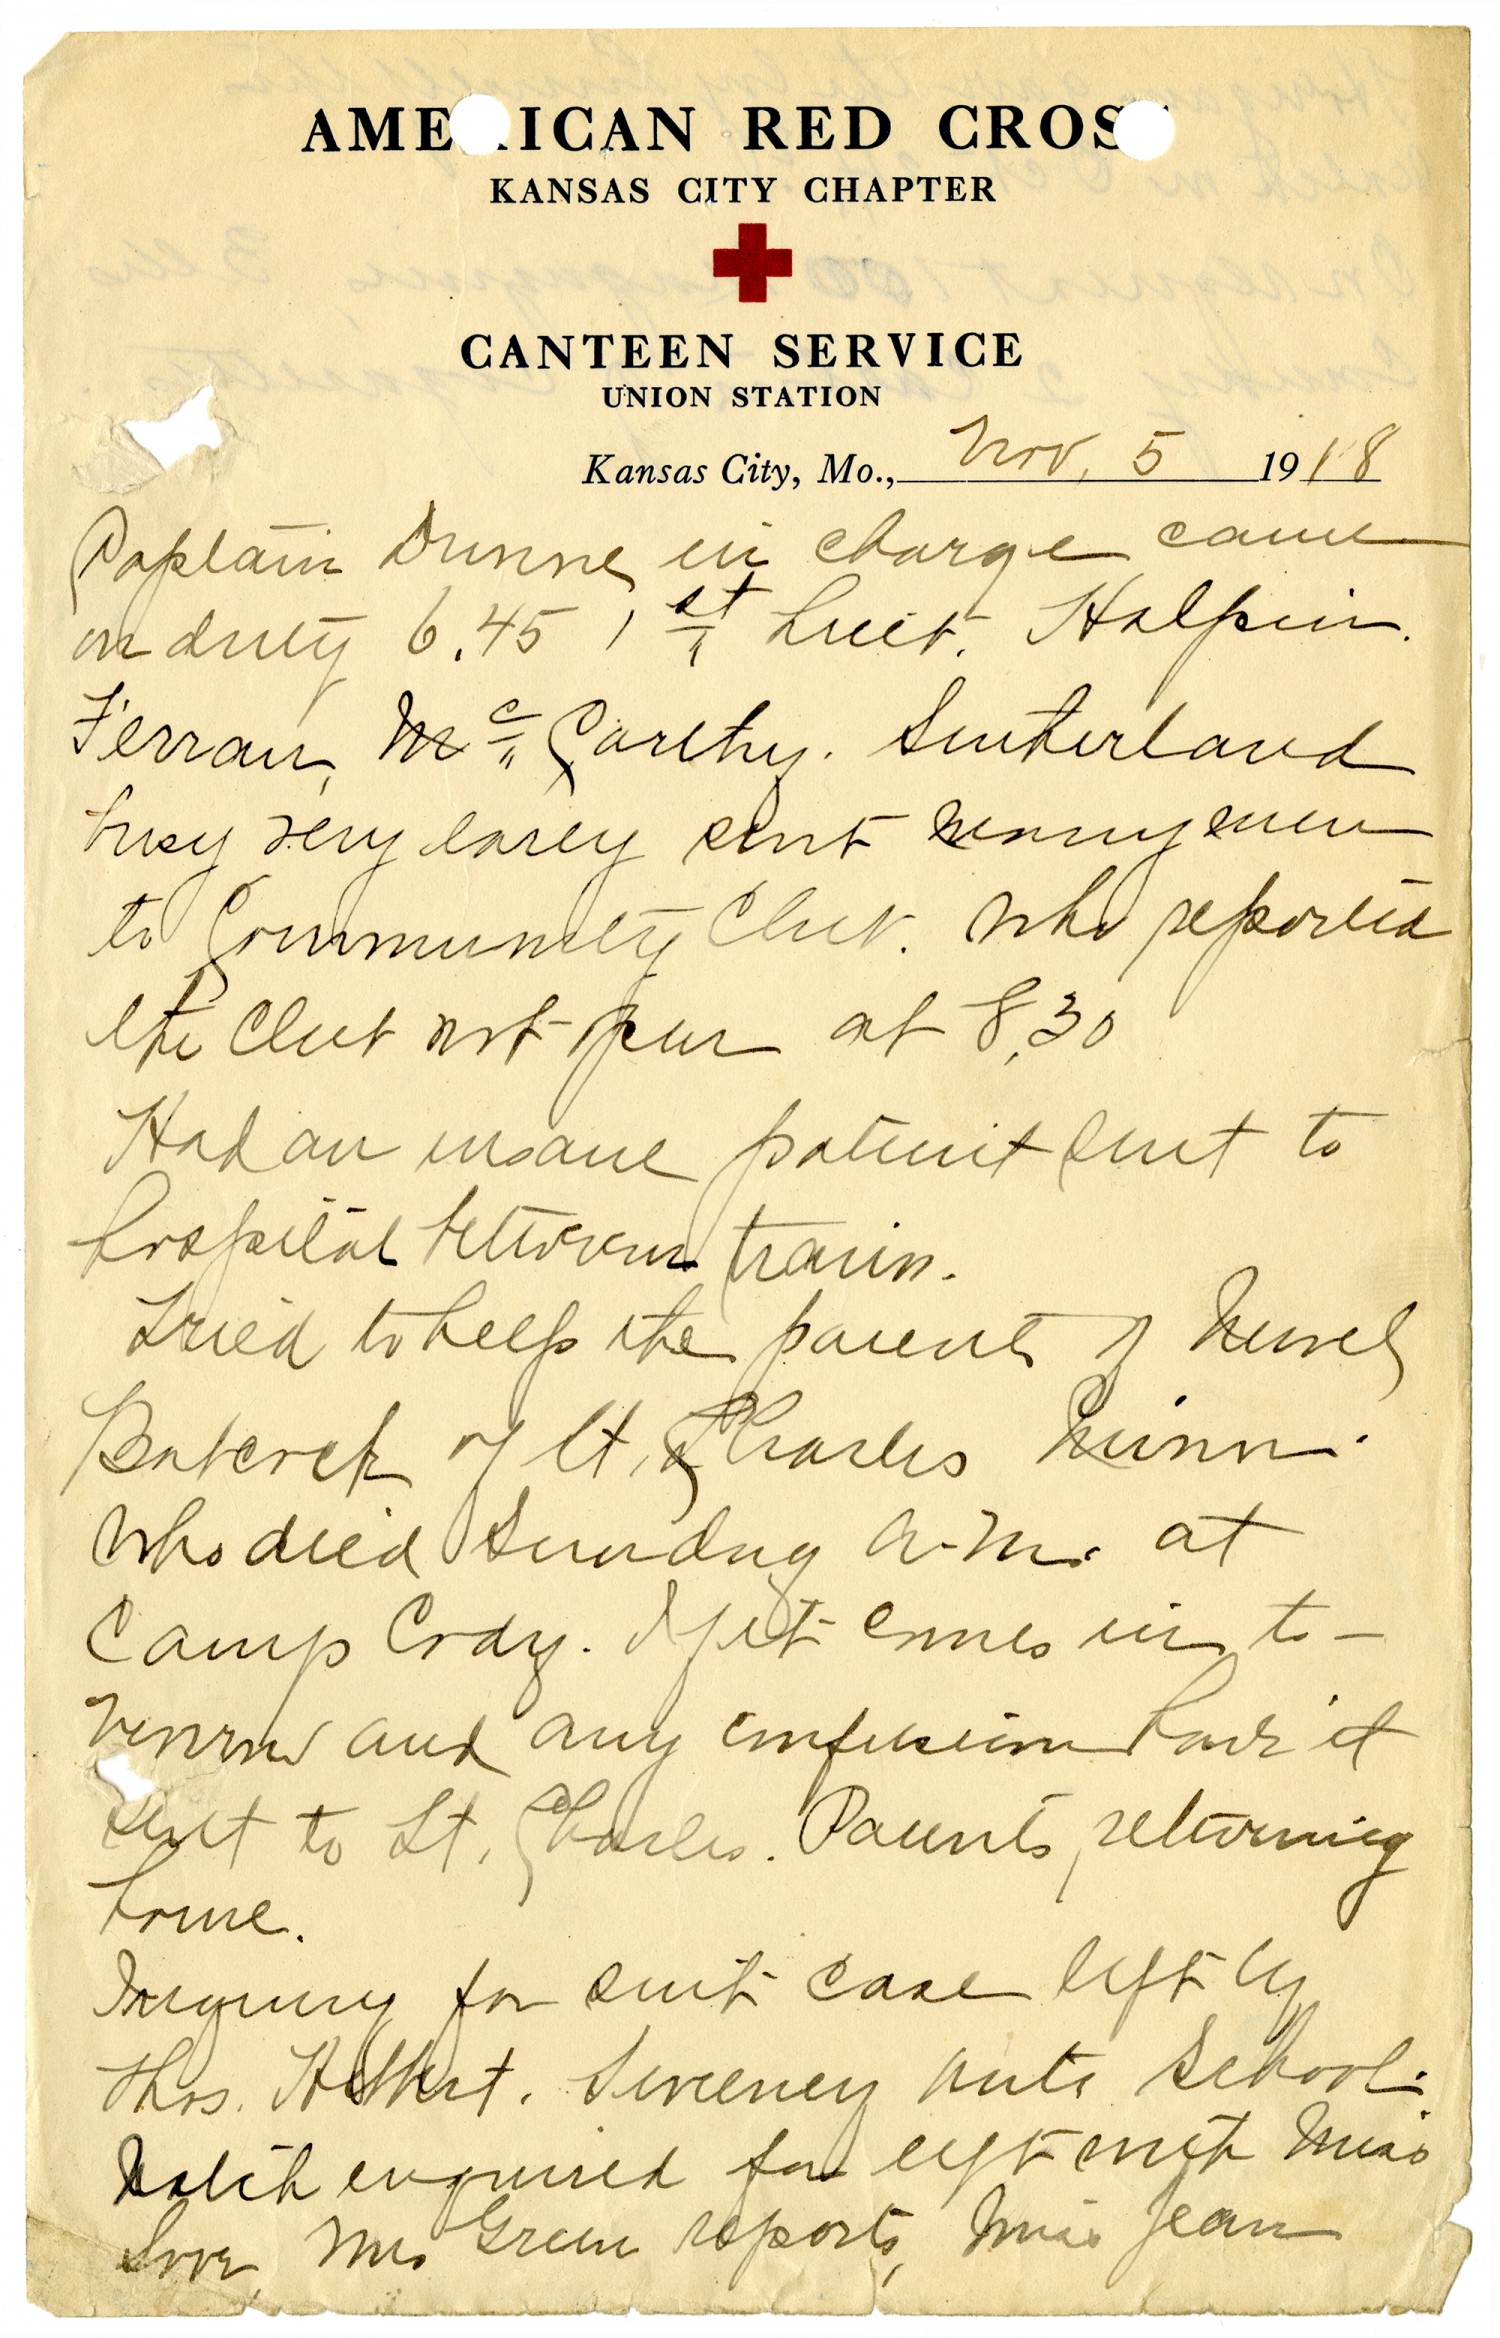 AMERICAN RED CROSS
KANSAS CITY CHAPTER
CANTEEN SERVICE
UNION STATION
Kansas City, Mo., Nov. 5 1918
Captain Dunne, in charge came
on duty 6.45 1st Luit. Halpin.
Ferran, McCarthy. Sutherland
busy very larly sent many men
to Community Club. who reported
the Club not open at 8,30
Had an insane patient sent to
hospital between train.
Tried to help the parents of
of St. Charles Minn.
who died Sunday A.M. at
Camp Cody. If it comes in to-
morrow and any confusion have it
sent to St. Charles. Parents returning
home.
Inquiry for suit case left by
Thos. Sweeney Auto School.
enquired for left with Miss
Love, Mrs Green reports, Miss Jean